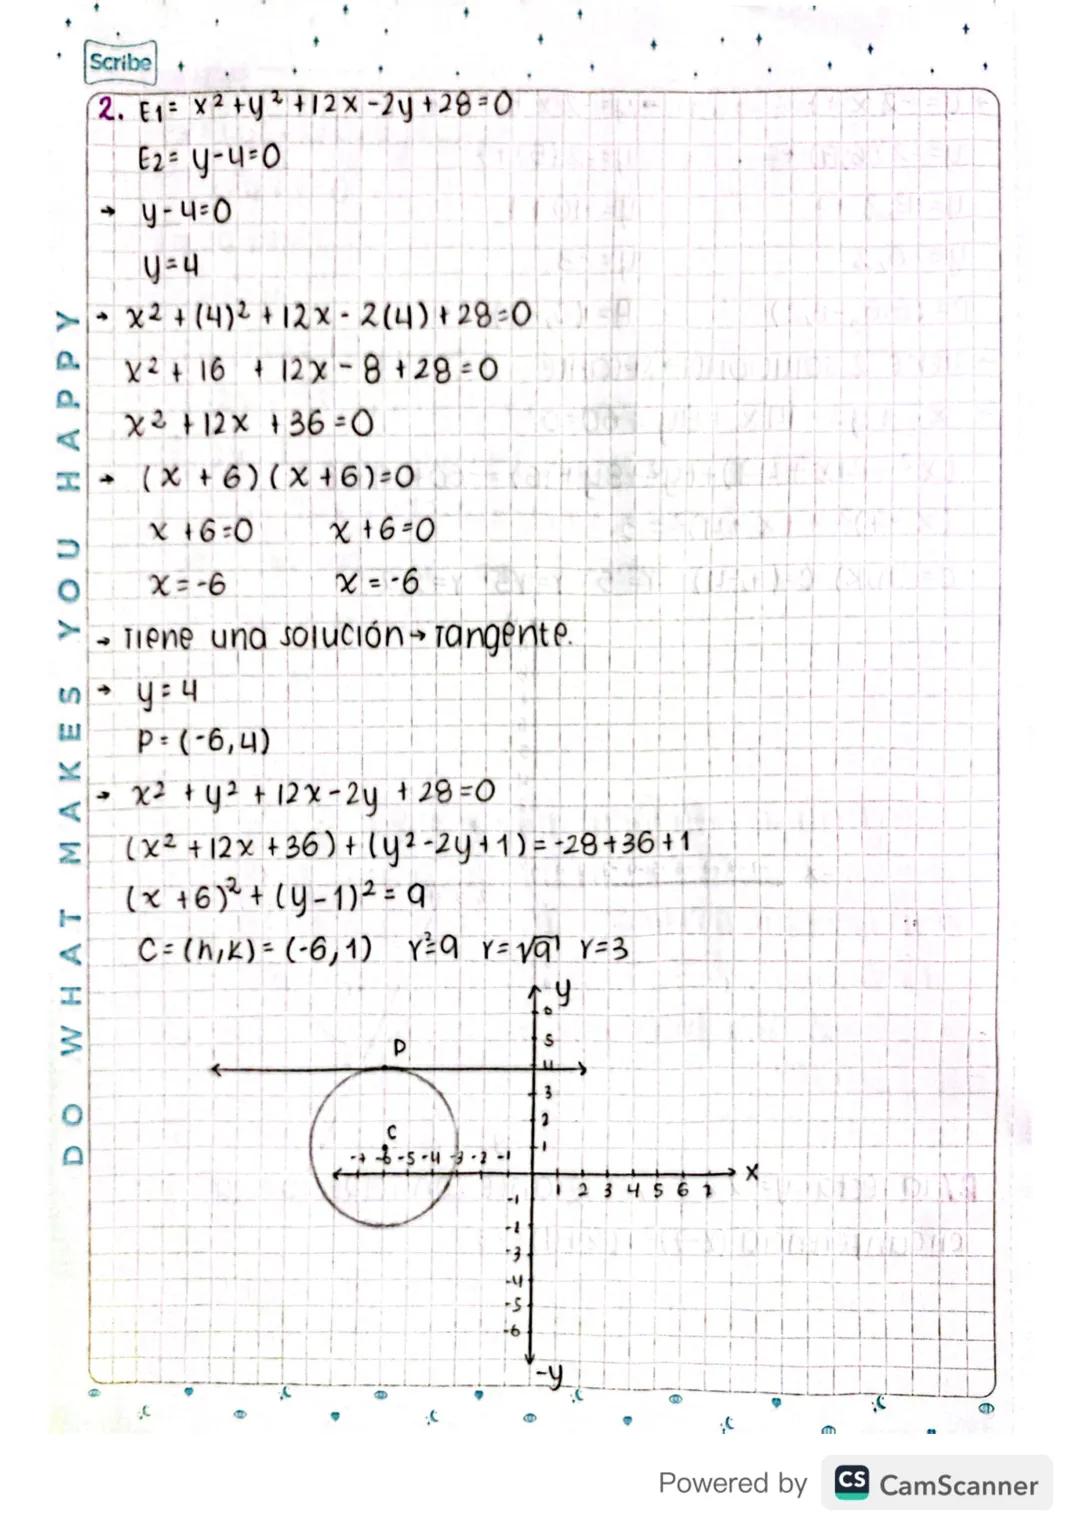 Scribe
2. E1= x² + y² + 12x - 2y + 28 = 0
E2= y-4=0
→ y-4=0
y=4
→ x² + (4)² + 12x - 2(4) + 28 = 0
x² + 16 + 12x - 8 + 28 = 0
x² + 12x + 36 = 0
→ (x + 6)(x + 6) = 0
x + 6 = 0 x + 6 = 0
x = -6 x = -6
→ Tiene una solución → Tangente.
→ y = 4
P = (-6,4)
→ x² + y² + 12x - 2y + 28 = 0
(x² + 12x + 36) + (y² - 2y + 1) = -28 + 36 + 1
(x + 6)² + (y - 1)² = 9
C = (h,k) = (-6,1) r²=9 r=√9 r=3
y
6
5
P
4
3
2
C
1
-7 -6 -5 -4 -3 -2 -1
x
1 2 3 4 5 6 7
-1
-2
-3
-4
-5
-6
-y
DO WHAT MAKES YOU HAPPY
Powered by CS CamScanner